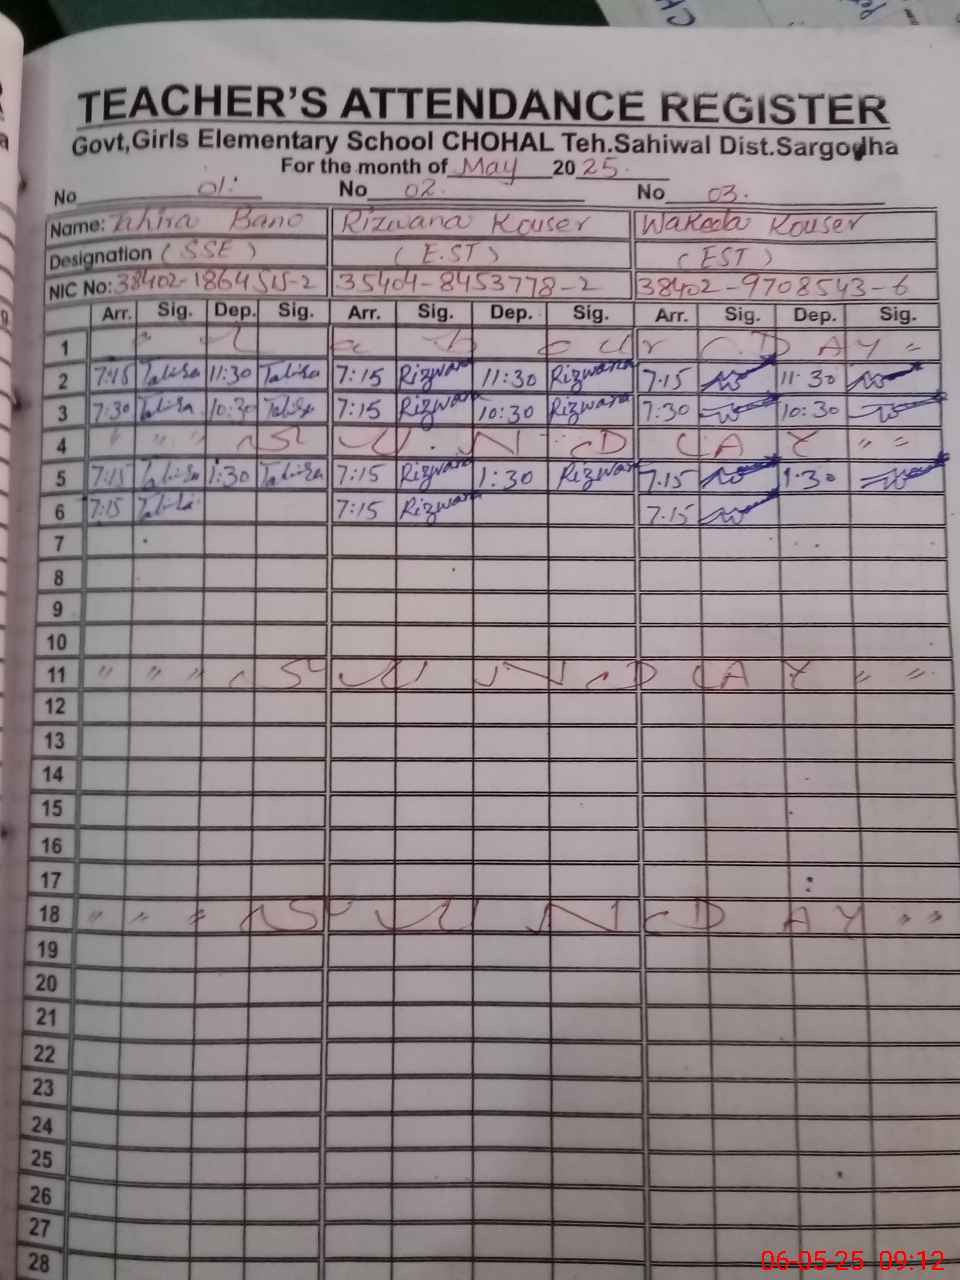 TEACHER'S ATTENDANCE REGISTER
Govt,Girls Elementary School CHOHAL Teh.Sahiwal Dist.Sargodha
For the month of May 2025.
No 01. No 02. No 03.
Name: Tahira Bano Rizwana Kouser Wakeela Kouser
Designation (SSE) (E.ST) (EST)
NIC No: 38402-1864515-2 35404-8453778-2 38402-9708543-6
Arr. Sig. Dep. Sig. Arr. Sig. Dep. Sig. Arr. Sig. Dep. Sig.
1 " L a b o u r D A Y "
2 7:15 Tahira 11:30 Tahira 7:15 Rizwana 11:30 Rizwana 7.15 11.30
3 7:30 Tahira 10:30 Tahira 7:15 Rizwana 10:30 Rizwana 7:30 10:30
4 " " " S U N D A Y " "
5 7:15 Tahira 1:30 Tahira 7:15 Rizwana 1:30 Rizwana 7.15 1.30
6 7:15 Tahira 7:15 Rizwana 7.15
7
8
9
10
11 " " " S U N D A Y " "
12
13
14
15
16
17
18 " " " S U N D A Y " "
19
20
21
22
23
24
25
26
27
28
06-05-25 09:12